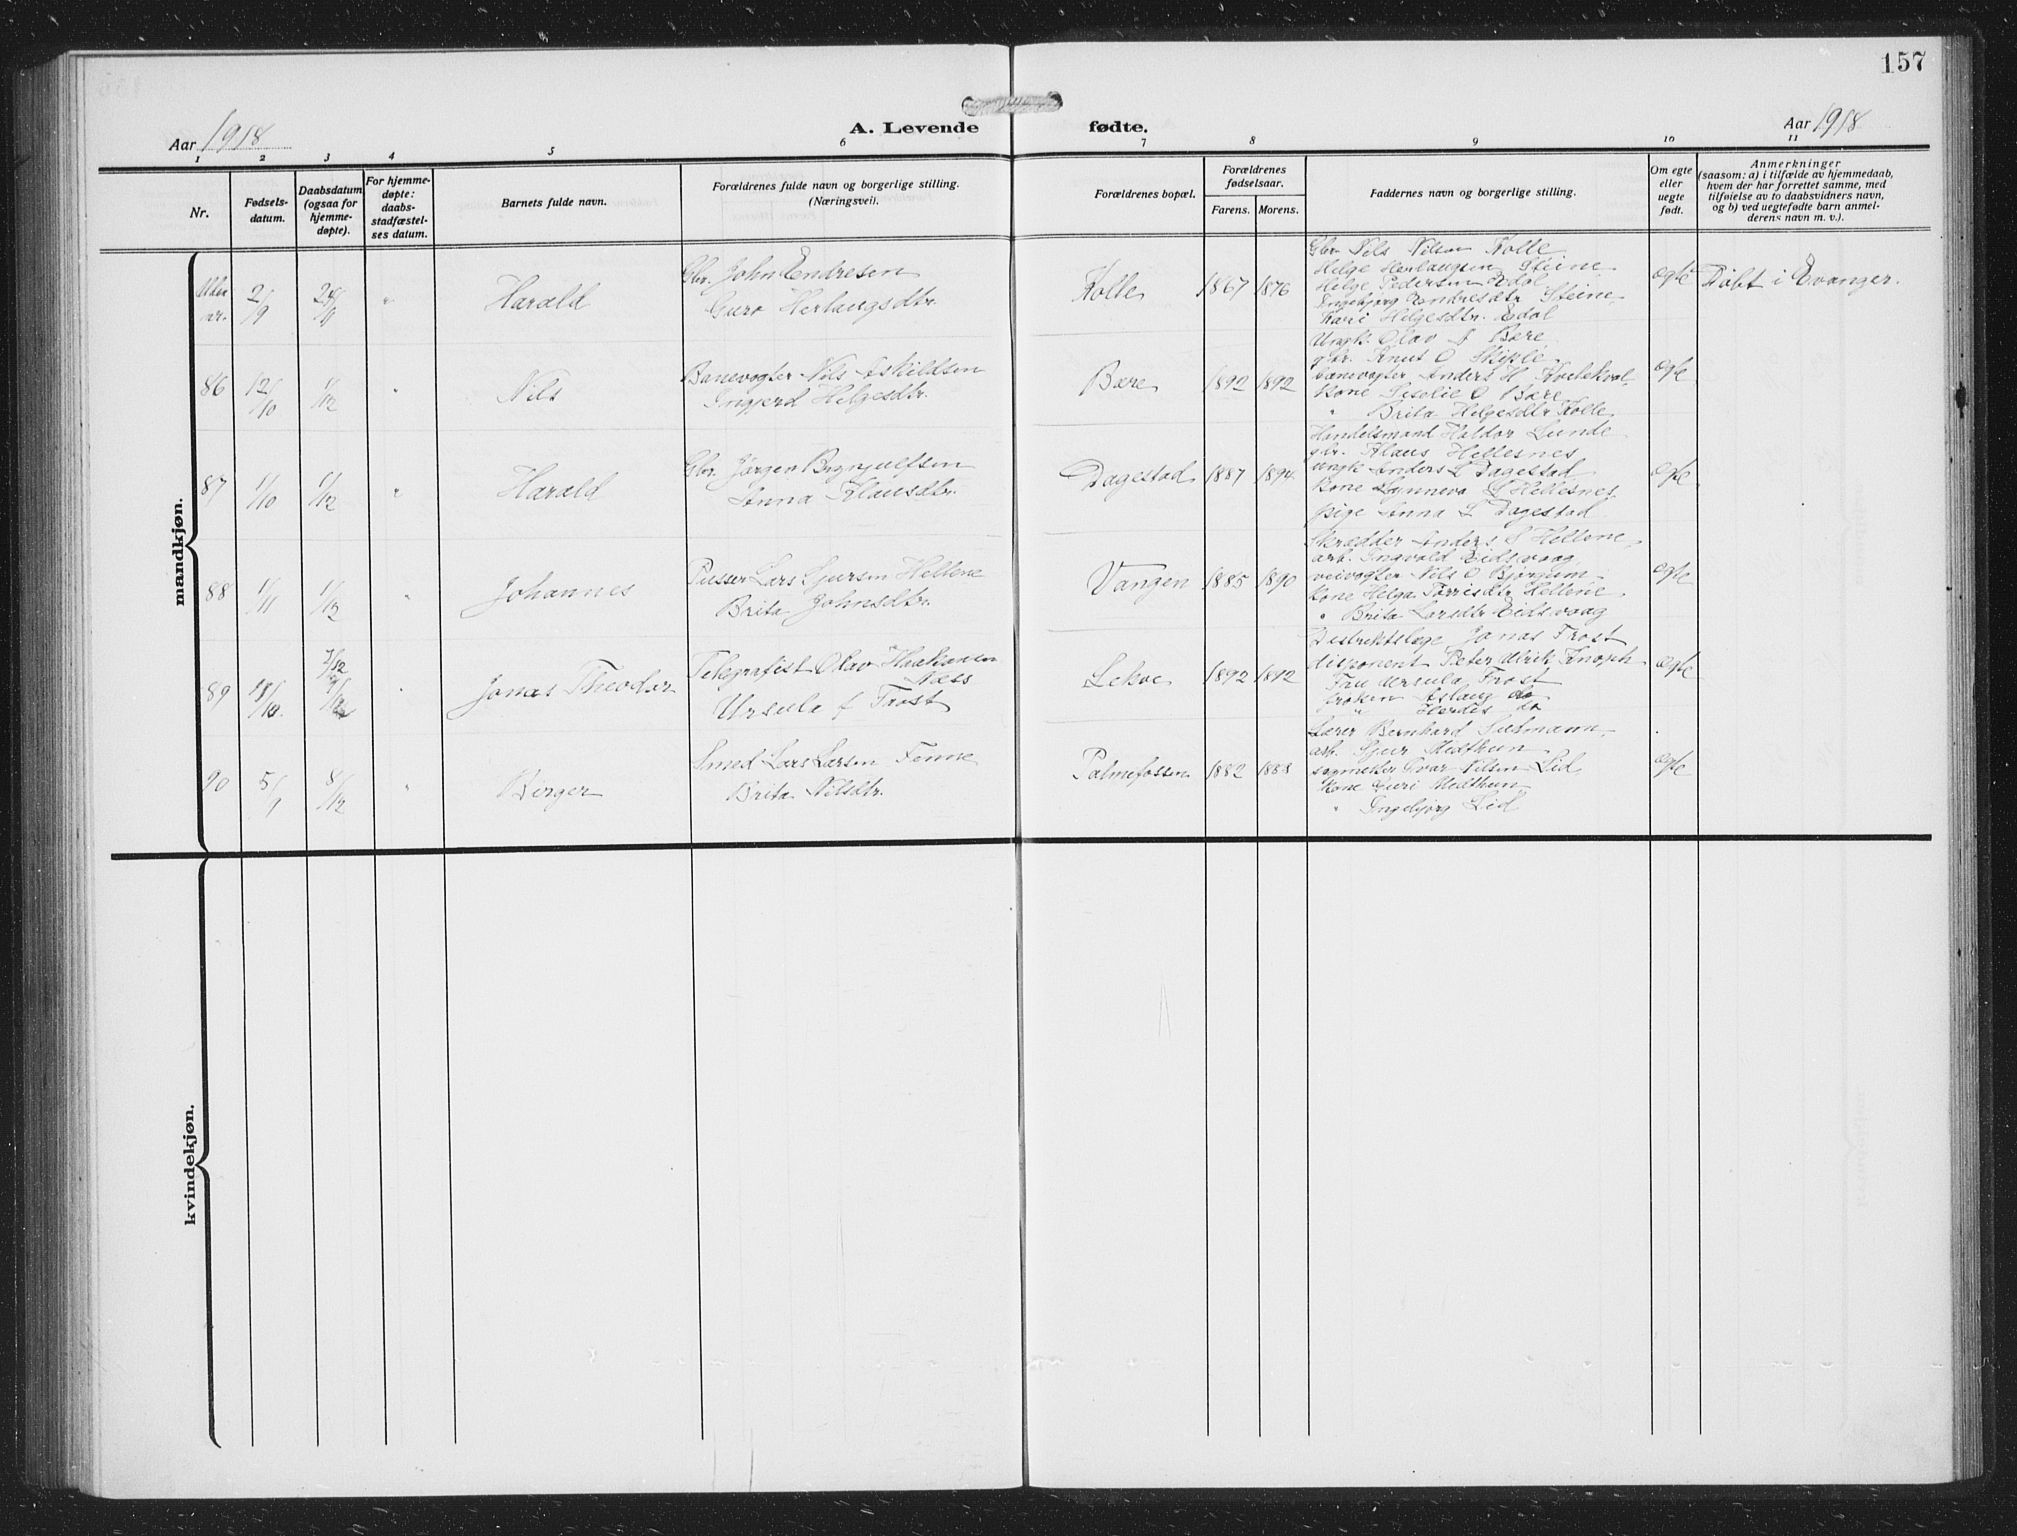 157
Aar 1918
A. Levende fødte.
Aar 1918
1 2 3 4 5 6 7 8 9 10 11
Nr.
Fødsels-
datum.
Daabsdatum
(ogsaa for
hjemme-
døpte).
For hjemme-
døpte:
daabs-
stadfæstel-
ses datum.
Barnets fulde navn.
Forældrenes fulde navn og borgerlige stilling.
(Næringsvei).
Forældrenes bopæl.
Forældrenes
fødselsaar.
Farens. Morens.
Faddernes navn og borgerlige stilling.
Om egte
eller
uegte
født.
Anmerkninger
(saasom: a) i tilfælde av hjemmedaab,
hvem der har forrettet samme, med
tilføielse av to daabsvidners navn,
og b) ved uegtefødte barn anmel-
derens navn m. v.).
mandkjøn.
Uten
nr.
2/9
24/11
"
Harald
Gbr. John Endresen
Guro Herlaugsdtr.
Kolle
1867
1876
Gbr. Nils Nilsen Kolle
Helge Herlaugsen Steine
Helge Pedersen Edal
Ingebjørg Endresdtr Steine
Kari Helgesdtr. Edal
egte
Døbt i Evanger.
86
12/10
1/12
"
Nils
Banevogter Nils Askildsen
Ingjerd Helgesdtr.
Bære
1892
1892
Ungk. Olav J Bære
gbr. Knut O Skiple
banevogter Anders H Kvilekval
Kone O Bære
" Brita Helgesdtr Kolle
egte
87
1/10
1/12
"
Harald
Gbr. Jørgen Brynjulfsen
Anna Klausdtr.
Dagestad
1887
1894
Handelsmand Haldor Lunde
gbr. Klaus Hellesnes
ungk Anders L Dagestad
Kone Synneva S Hellesnes
pige Anna L Dagestad
egte
88
1/11
1/12
"
Johannes
Pusser Lars Sjursen Hellene
Brita Johnsdtr.
Vangen
1885
1890
Skrædder Anders S Hellene
arb. Ingvald Eidsvaag
veivogter Nils O Bjørgum
Kone Helga Torrisdtr Hellene
" Brita Larsdtr Eidsvaag
egte
89
7/12
Jonas Theodor
Telegrafist Olav Haakonsen
Næss
Ursula f Frost
Lekve
1892
1892
Distriktslæge Jonas Frost
disponent Peter Ulrik Knoph
Fru Ursula Frost
frøken Aslaug do
" Herdis do
egte
90
5/9
8/12
"
Birger
Smed Lars Larsen Fenne
Brita Nilsdtr.
Palmefossen
1882
1888
Lærer Bernhard
arb. Sjur Midthun
sagmester Ivar Nilsen Lid
Kone Guri Midthun
" Ingebjørg Lid
egte
kvindekjøn.